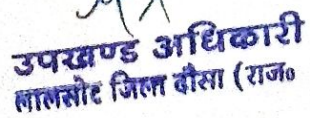 उपखण्ड अधिकारी
लालसोट जिला दौसा (राज०